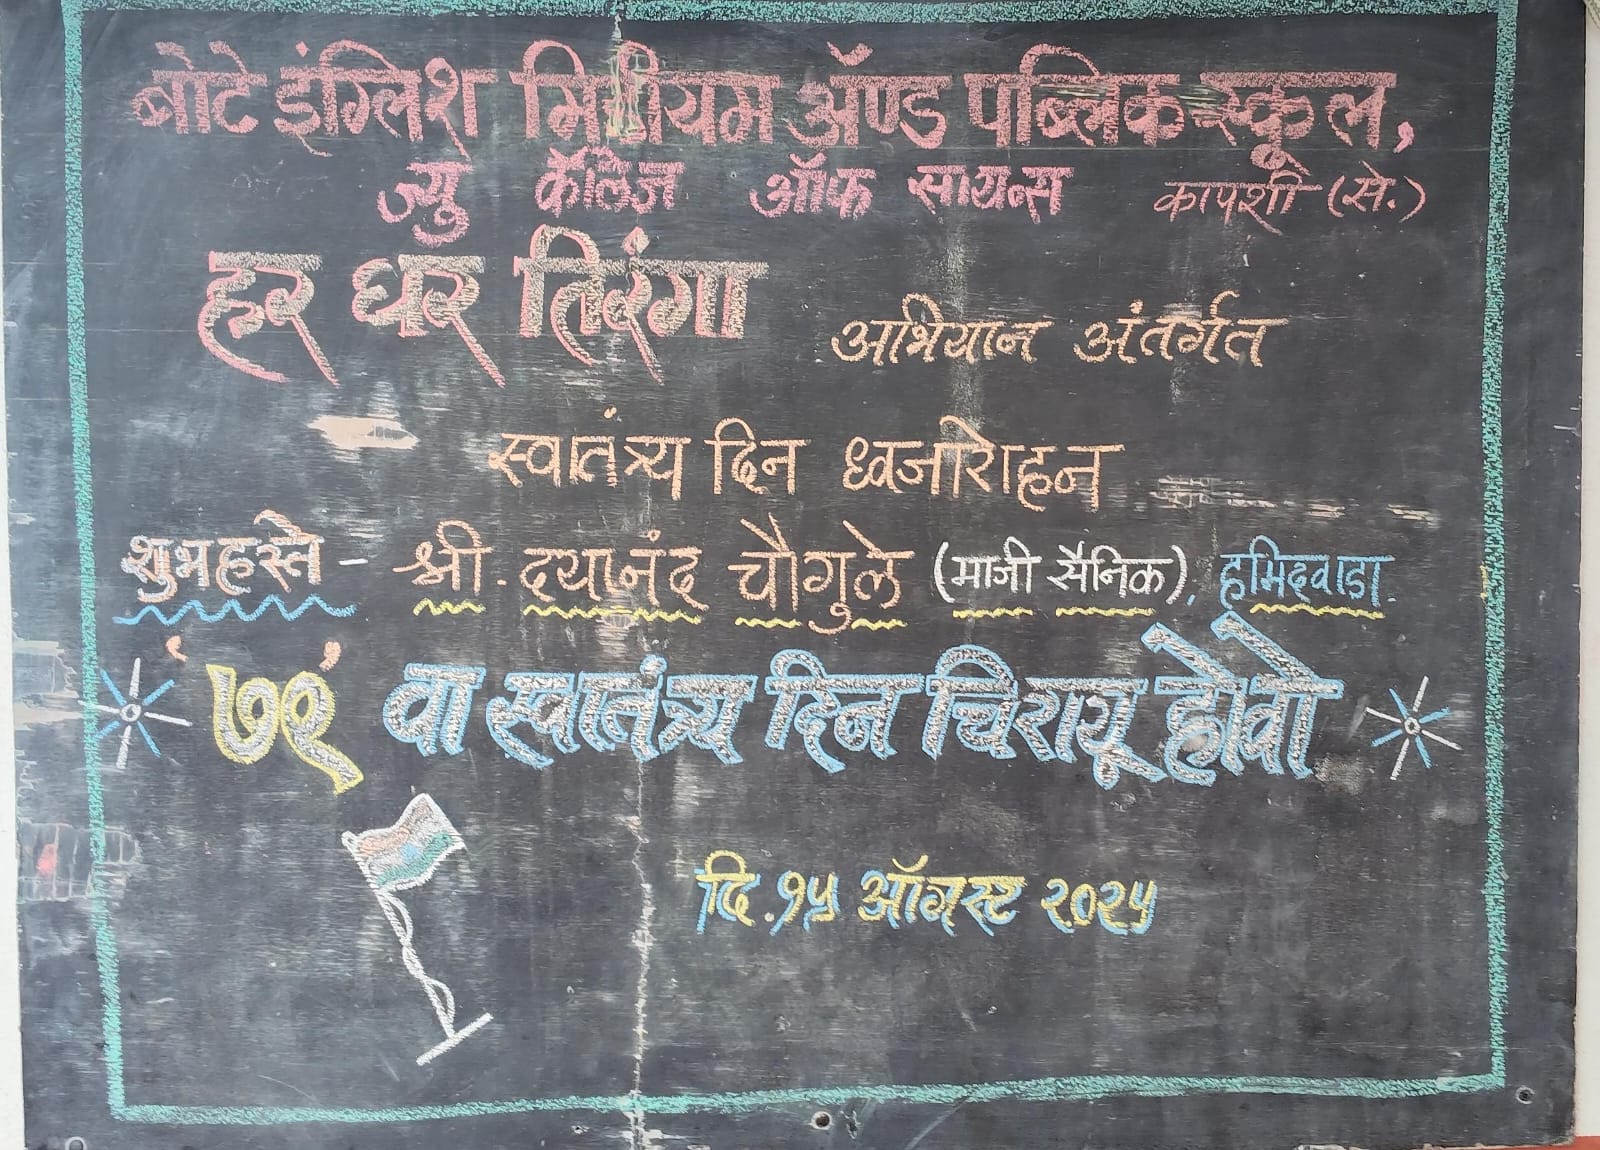 बोटे इंग्लिश मिडीयम ॲण्ड पब्लिक स्कूल,
ज्यु कॅलेज ऑफ सायन्स कापशी (से.)
हर घर तिरंगा अभियान अंतर्गत
स्वातंत्र्य दिन ध्वजारोहन
शुभहस्ते - श्री. दयानंद चौगुले (माजी सैनिक), हमिदवाडा.
'७९' वा स्वातंत्र्य दिन चिरायू होवो
दि. १५ ऑगस्ट २०२५